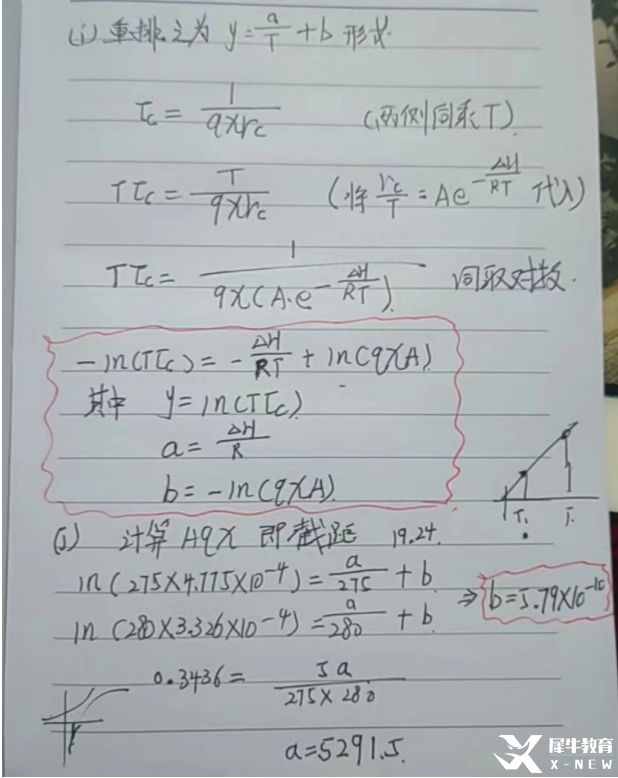 (i) 重排之为 y = a/T + b 形式
τc = 1/(qχrc) (两侧同乘T)
Tτc = T/(qχrc) (将 rc/T = Ae^(-ΔH/RT) 代入)
Tτc = 1/(qχ(A·e^(-ΔH/RT))) 同取对数.
-ln(Tτc) = -ΔH/RT + ln(qχA)
其中 y = ln(Tτc)
a = ΔH/R
b = -ln(qχA)
T₁
(j) 计算Aqχ 即截距 19.24.
ln(275×4.775×10⁻⁴) = a/275 + b
ln(280×3.326×10⁻⁴) = a/280 + b
⇒ b=5.79×10⁻¹⁰
0.3436 = 5a/(275×280)
a=5291.5.
犀牛教育
X-NEW